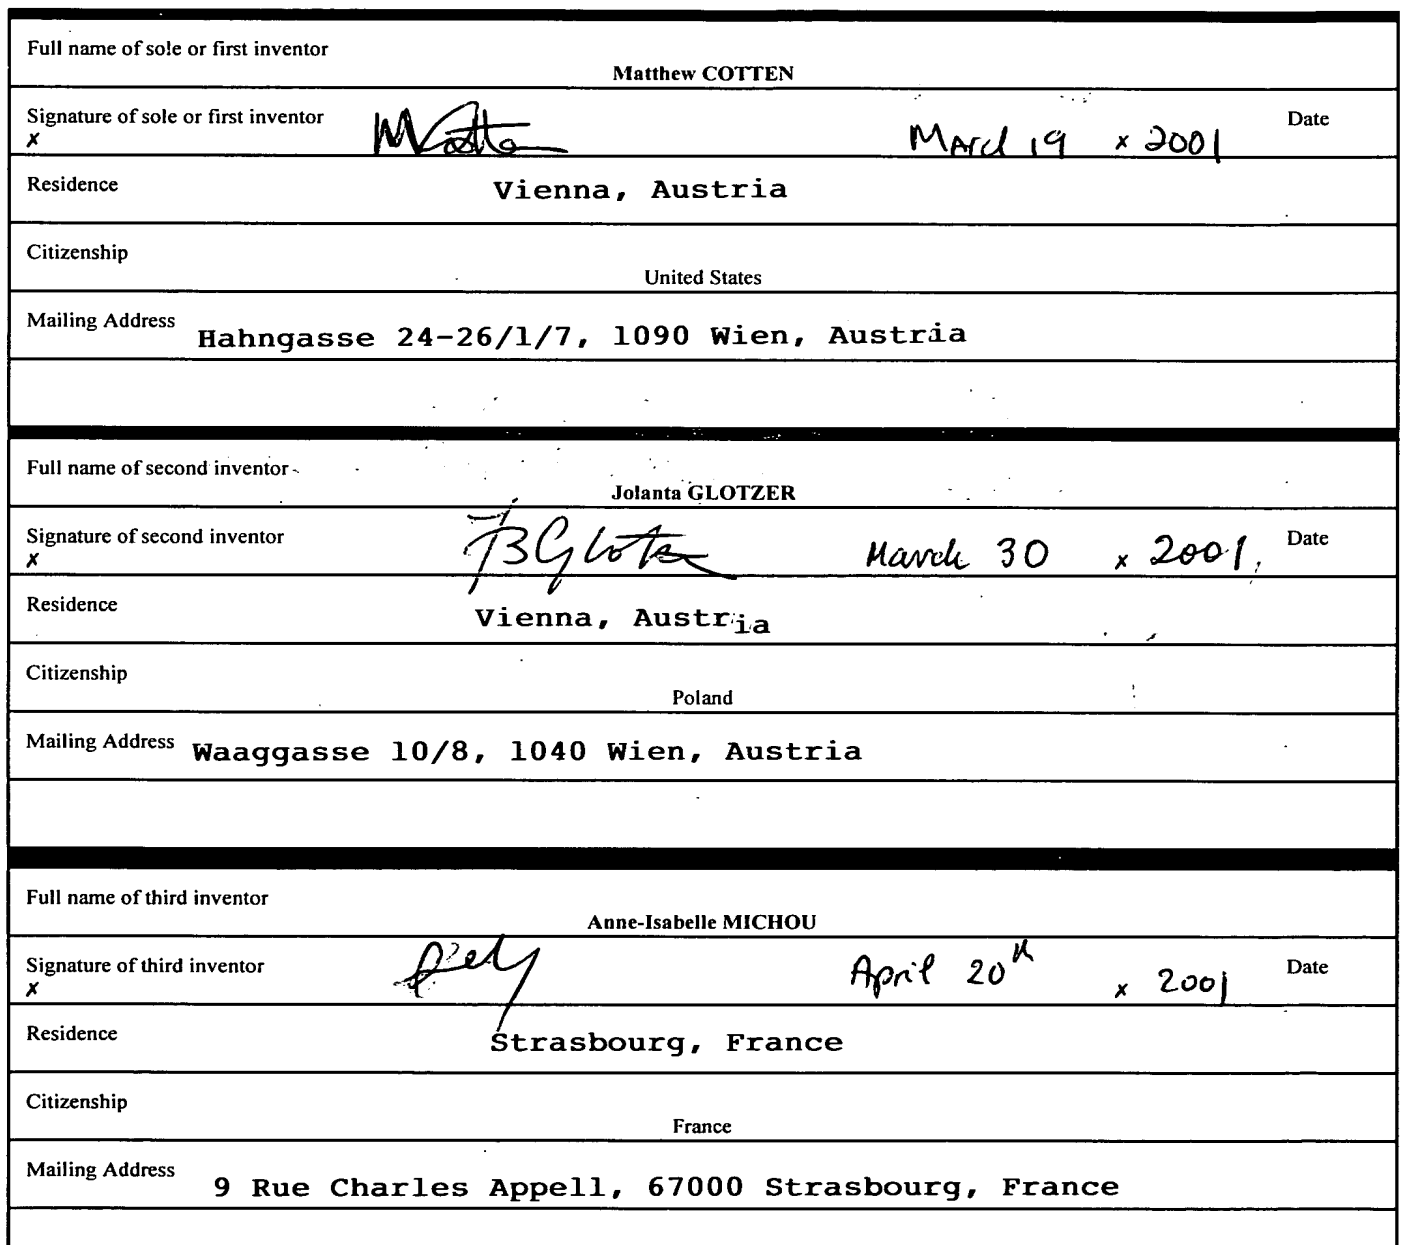 Full name of sole or first inventor
Matthew COTTEN
Signature of sole or first inventor March 19 x 2001 Date
x
Residence Vienna, Austria
Citizenship
United States
Mailing Address Hahngasse 24-26/1/7, 1090 Wien, Austria
Full name of second inventor
Jolanta GLOTZER
Signature of second inventor March 30 x 2001. Date
x
Residence Vienna, Austria
Citizenship
Poland
Mailing Address Waaggasse 10/8, 1040 Wien, Austria
Full name of third inventor
Anne-Isabelle MICHOU
Signature of third inventor April 20th x 2001 Date
x
Residence Strasbourg, France
Citizenship
France
Mailing Address 9 Rue Charles Appell, 67000 Strasbourg, France